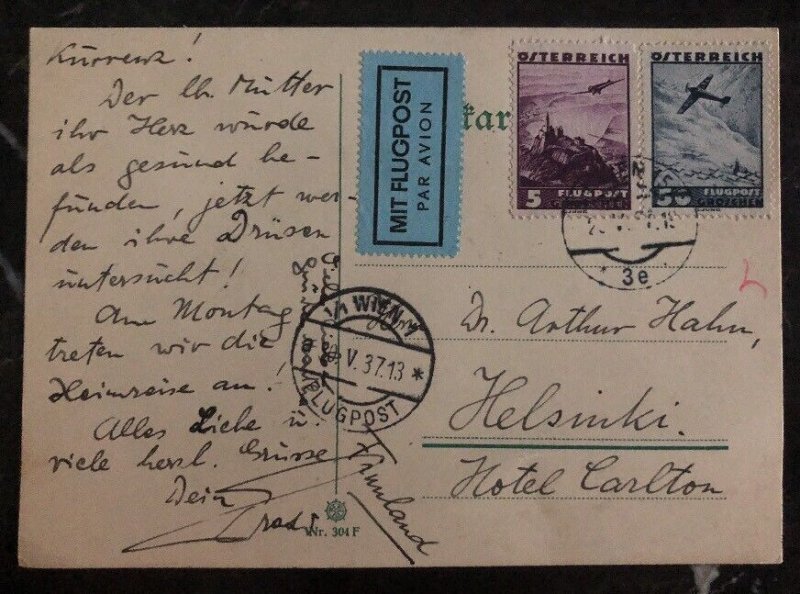 Kurrenz!
Der lb. Mutter
ihr Herz wurde
als gesund be-
funden, jetzt wer-
den ihre Drüsen
untersucht!
Am Montag
treten wir die
Heimreise an!
Alles Liebe u.
viele herzl. Grüsse
Dein
MIT FLUGPOST
PAR AVION
kar
ÖSTERREICH
5 FLUGPOST
GROSCHEN
ÖSTERREICH
50 FLUGPOST
GROSCHEN
3e
1/1 WIEN 1/1
V. 37.13 *
FLUGPOST
Herrn
Dr. Arthur Hahn,
Helsinki.
Hotel Carlton
Finnland
Nr. 304 F